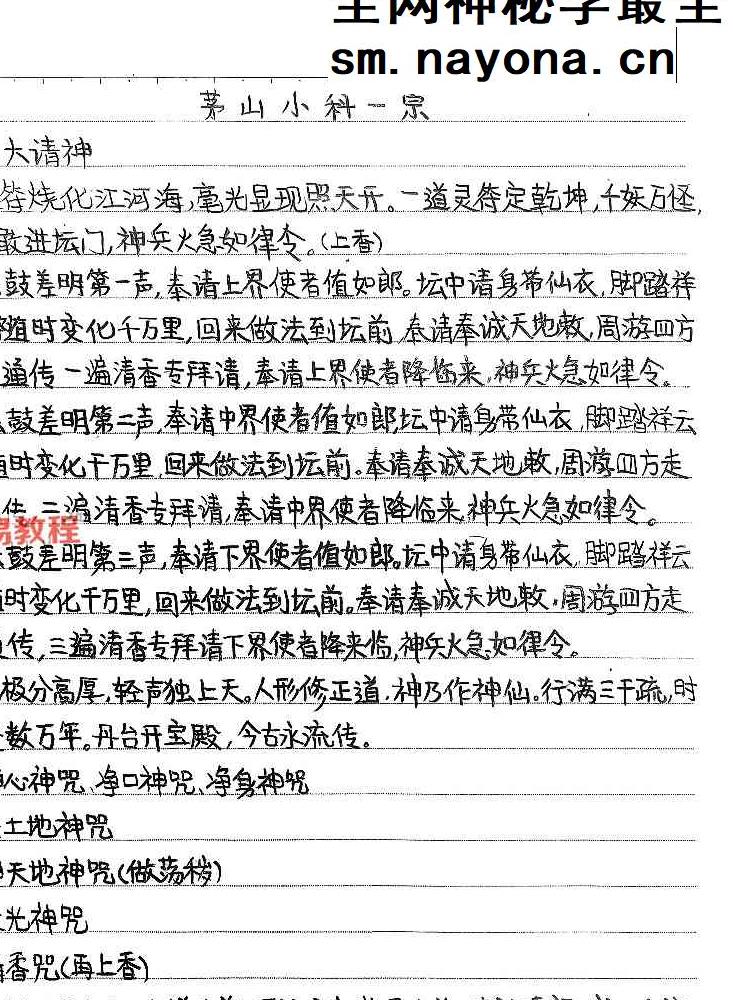 全网神秘学最全
sm.nayona.cn
茅山小科一宗
大请神
符烧化江河海,毫光显现照天开。一道灵符定乾坤,千妖万怪,
敢进坛门,神兵火急如律令。(上香)
鼓差明第一声,奉请上界使者值如郎。坛中请身带仙衣,脚踏祥
随时变化千万里,回来做法到坛前 奉请奉诚天地敕,周游四方
通传 一遍清香专拜请,奉请上界使者降临来,神兵火急如律令。
鼓差明第二声,奉请中界使者值如郎,坛中请身带仙衣,脚踏祥云
随时变化千万里,回来做法到坛前。奉请奉诚天地敕,周游四方走
传,二遍清香专拜请,奉请中界使者降临来,神兵火急如律令。
易教程
鼓差明第三声,奉请下界使者值如郎。坛中请身带仙衣,脚踏祥云
时变化千万里,回来做法到坛前。奉请奉诚天地敕,周游四方走
传,三遍清香专拜请下界使者降来临,神兵火急如律令。
极分高厚,轻声独上天。人形修正道,神乃作神仙。行满三千疏,时
数万年。丹台开宝殿,今古永流传。
心神咒、净口神咒、净身神咒
土地神咒
天地神咒(做荡秽)
光神咒
香咒(再上香)